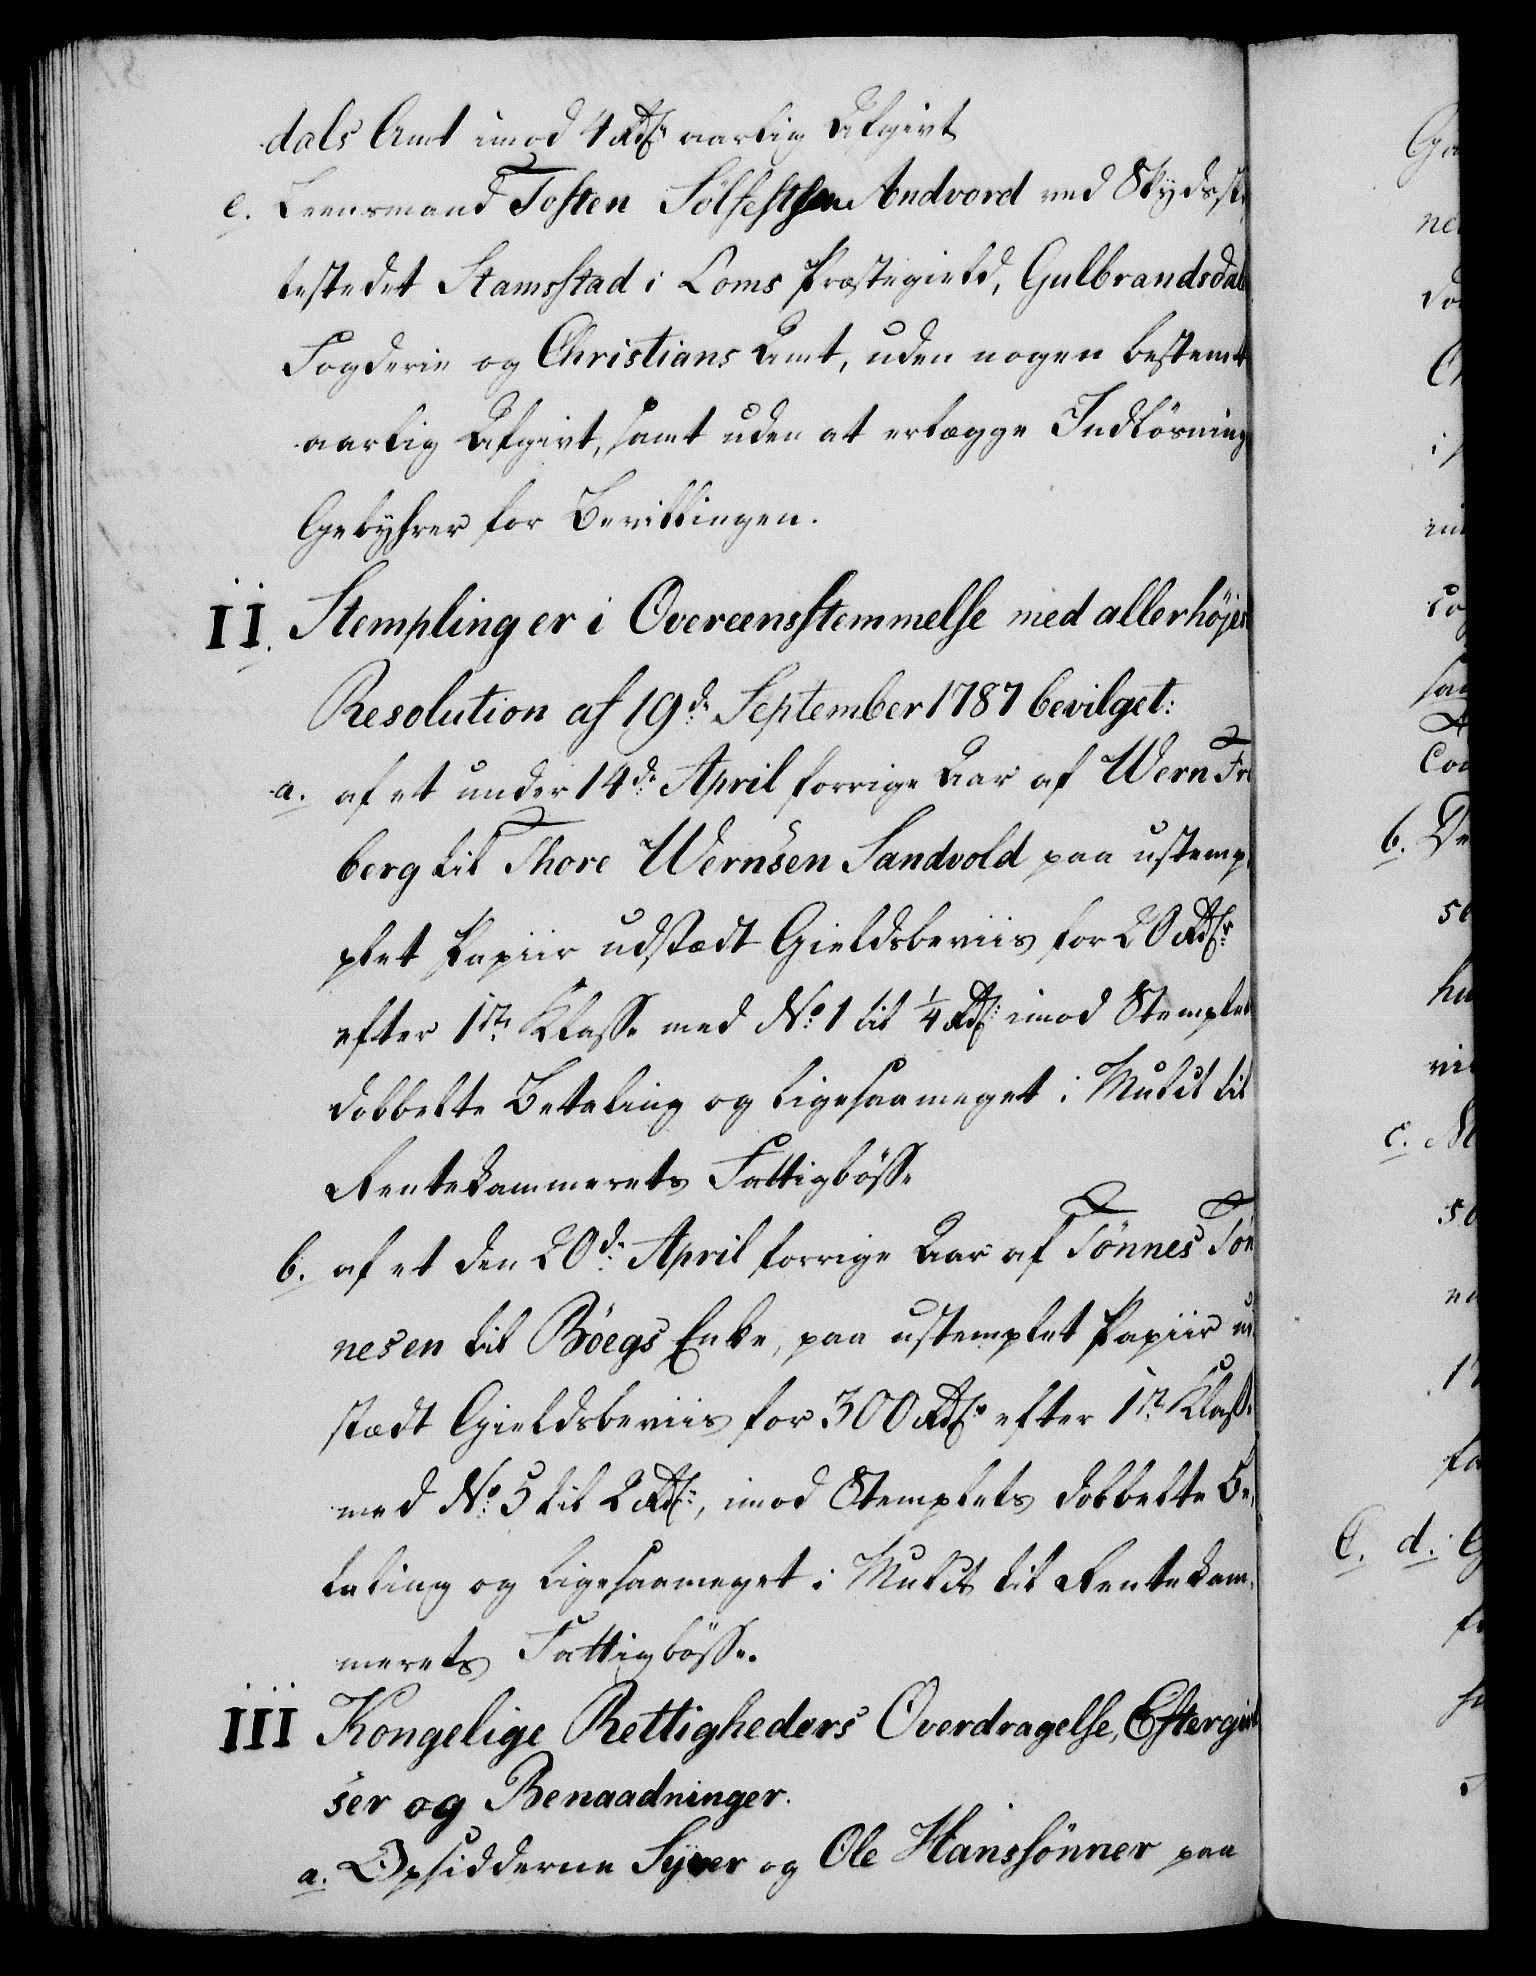 dals Amt imod 4 Rdr aarlig Afgivt
e. Leensmand Tosten Sölfestsen Andvord ved Skydssk
testedet Stamsstad i Loms Præstegield, Gulbrandsdal
Fogderie og Christians Amt, uden nogen bestemt
aarlig Afgivt, samt uden at erlægge Indlösning
Gebyhrer for Bevillingen.
II. Stemplinger i Overeensstemmelse med allerhöjes
Resolution af 19de September 1787 bevilget:
a. af et under 14de April forrige Aar af Wern Fr
berg til Thore Wernsen Sandvold paa ustemp
plet Papiir udstædt Gieldsbeviis for 20 Rdr
efter 1ste Klasse med No 1 til 1/4 Rdr imod Stemplets
dobbelte Betaling og ligesaameget i Mulct til
Rentekammerets Fattigbösse
b. af et den 20de April forrige Aar af Tönnes Tön
nesen til Böegs Enke, paa ustemplet Papiir ud
stædt Gieldsbeviis for 300 Rdr efter 1ste Klasse
med No 5 til 2 Rdr, imod Stemplets dobbelte Be,
taling og ligesaameget i Mulct til Rentekam,
merets Fattigbösse.
III Kongelige Rettigheders Overdragelse, Eftergivel
ser og Benaadninger.
a. Opsidderne Syver og Ole Hanssönner paa